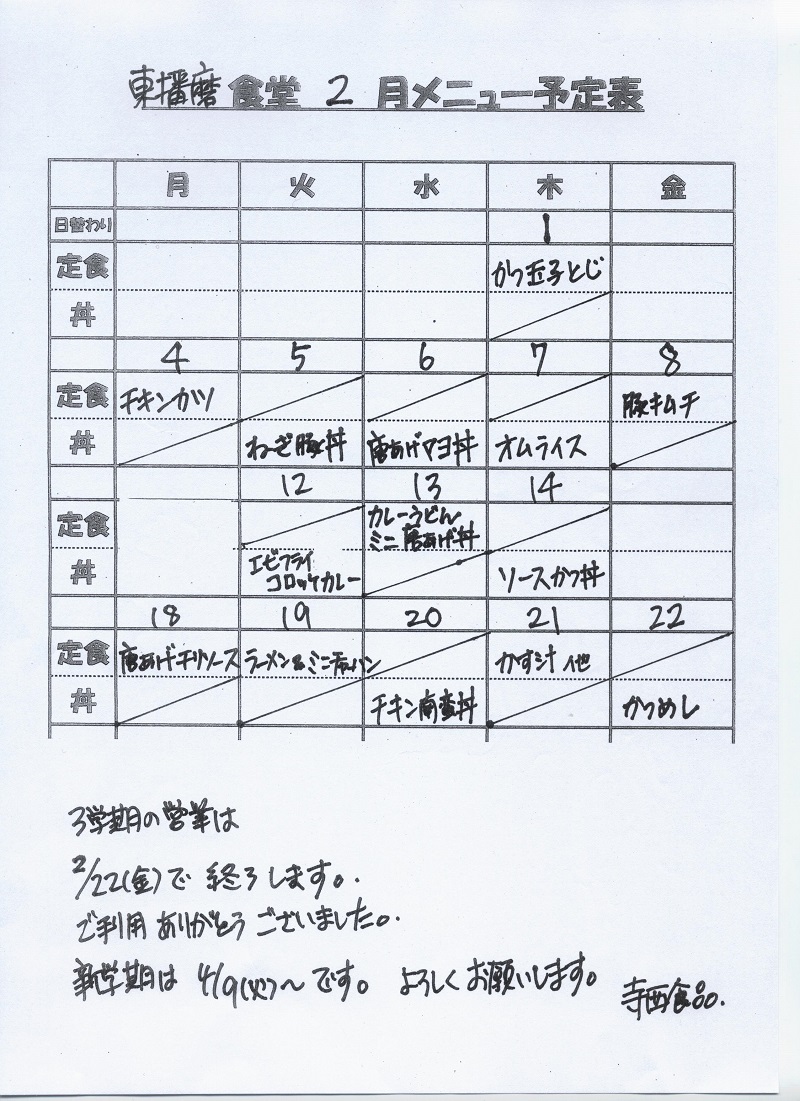 東播磨 食堂 2 月メニュー予定表
月 火 水 木 金
日替わり 1
定食 かつ玉子とじ
丼
4 5 6 7 8
定食 チキンカツ 豚キムチ
丼 ねぎ豚丼 唐あげマヨ丼 オムライス
12 13 14
定食 カレーうどん
ミニ唐あげ丼
丼 エビフライ ソースかつ丼
コロッケカレー
18 19 20 21 22
定食 唐あげチリソース ラーメン&ミニチャーハン かす汁 他
丼 チキン南蛮丼 かつめし
3学期の営業は
2/22(金)で 終了します。
ご利用 ありがとう ございました。
新学期は 4/9(火)〜です。 よろしくお願いします。
寺西食品.